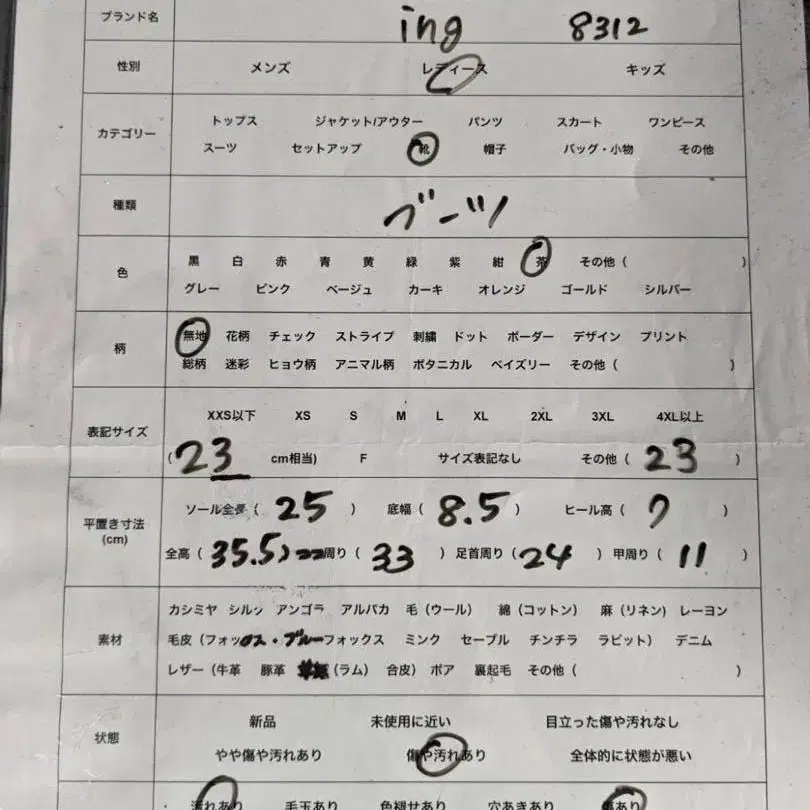 ブランド名 ing 8312
性別 メンズ レディース キッズ
カテゴリー
トップス ジャケット/アウター パンツ スカート ワンピース
スーツ セットアップ 靴 帽子 バッグ・小物 その他
種類 ブーツ
色
黒 白 赤 青 黄 緑 紫 紺 茶 その他 ( )
グレー ピンク ベージュ カーキ オレンジ ゴールド シルバー
柄
無地 花柄 チェック ストライプ 刺繍 ドット ボーダー デザイン プリント
総柄 迷彩 ヒョウ柄 アニマル柄 ボタニカル ペイズリー その他 ( )
表記サイズ
XXS以下 XS S M L XL 2XL 3XL 4XL以上
( 23 cm相当) F サイズ表記なし その他 ( 23 )
平置き寸法
(cm)
ソール全長 ( 25 ) 底幅 ( 8.5 ) ヒール高 ( 7 )
全高 ( 35.5 ) 周り ( 33 ) 足首周り ( 24 ) 甲周り ( 11 )
素材
カシミヤ シルク アンゴラ アルパカ 毛 (ウール) 綿 (コットン) 麻 (リネン) レーヨン
毛皮 (フォックス・ブルーフォックス ミンク セーブル チンチラ ラビット) デニム
レザー (牛革 豚革 (ラム) 合皮) ボア 裏起毛 その他 ( )
状態
新品 未使用に近い 目立った傷や汚れなし
やや傷や汚れあり 傷や汚れあり 全体的に状態が悪い
汚れあり 毛玉あり 色褪せあり 穴あきあり 傷あり